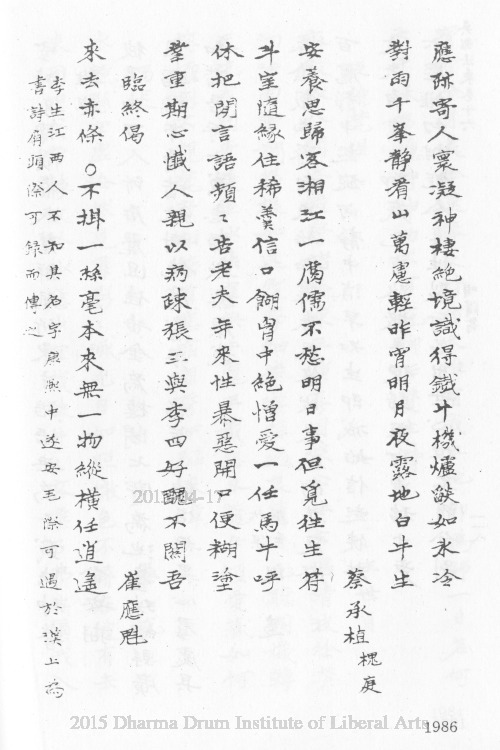 應跡寄人寰凝神棲絕境識得鐵牛機爐燄如氷冷
對雨千峯靜看山萬慮輕昨宵明月夜露地白牛生
蔡承植 槐庭
安養思歸客湘江一腐儒不愁明日事但覓往生符
斗室隨緣住稀羹信口餬胷中絕憎愛一任馬牛呼
休把閒言語頻々告老夫年來性暴惡開口便糊塗
業重期心懺人親以病踈張三與李四好醜不關吾
臨終偈 崔應魁
來去赤條〇不掛一絲毫本來無一物縱橫任逍遙
李生江西人不知其名字康熙中遂安毛際可遇於漢上為
書詩扇頭際可錄而傳之
2015-04-17
2015 Dharma Drum Institute of Liberal Arts
1986